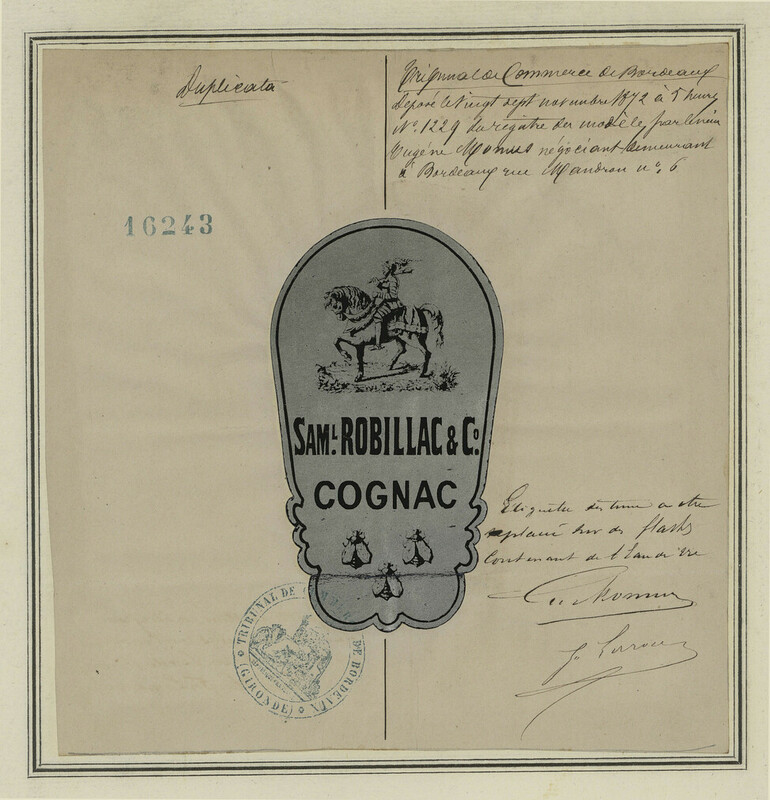 Duplicata
Tribunal de Commerce de Bordeaux
Déposé le vingt sept novembre 1872 à 5 heures
No. 1229 du registre des modèles par
Eugène négociant demeurant
à Bordeaux rue Mandron no. 6
16243
SAML. ROBILLAC & Co.
COGNAC
Etiquette destinée a etre
sur des flasks
contenant de l'eau de vie
TRIBUNAL DE DE BORDEAUX
(GIRONDE)